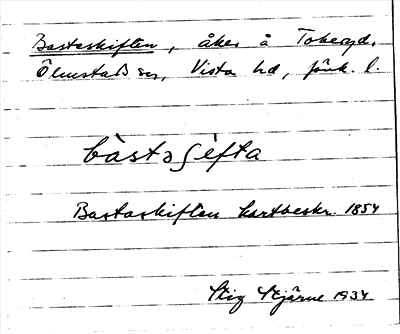 Bastaskiften, åker å Tokeryd,
Ölmstad sn, Vista hd, Jönk. l.
bàstaʃèfta
Bastaskiften kartbeskr. 1854
Stig Stjärne 1934